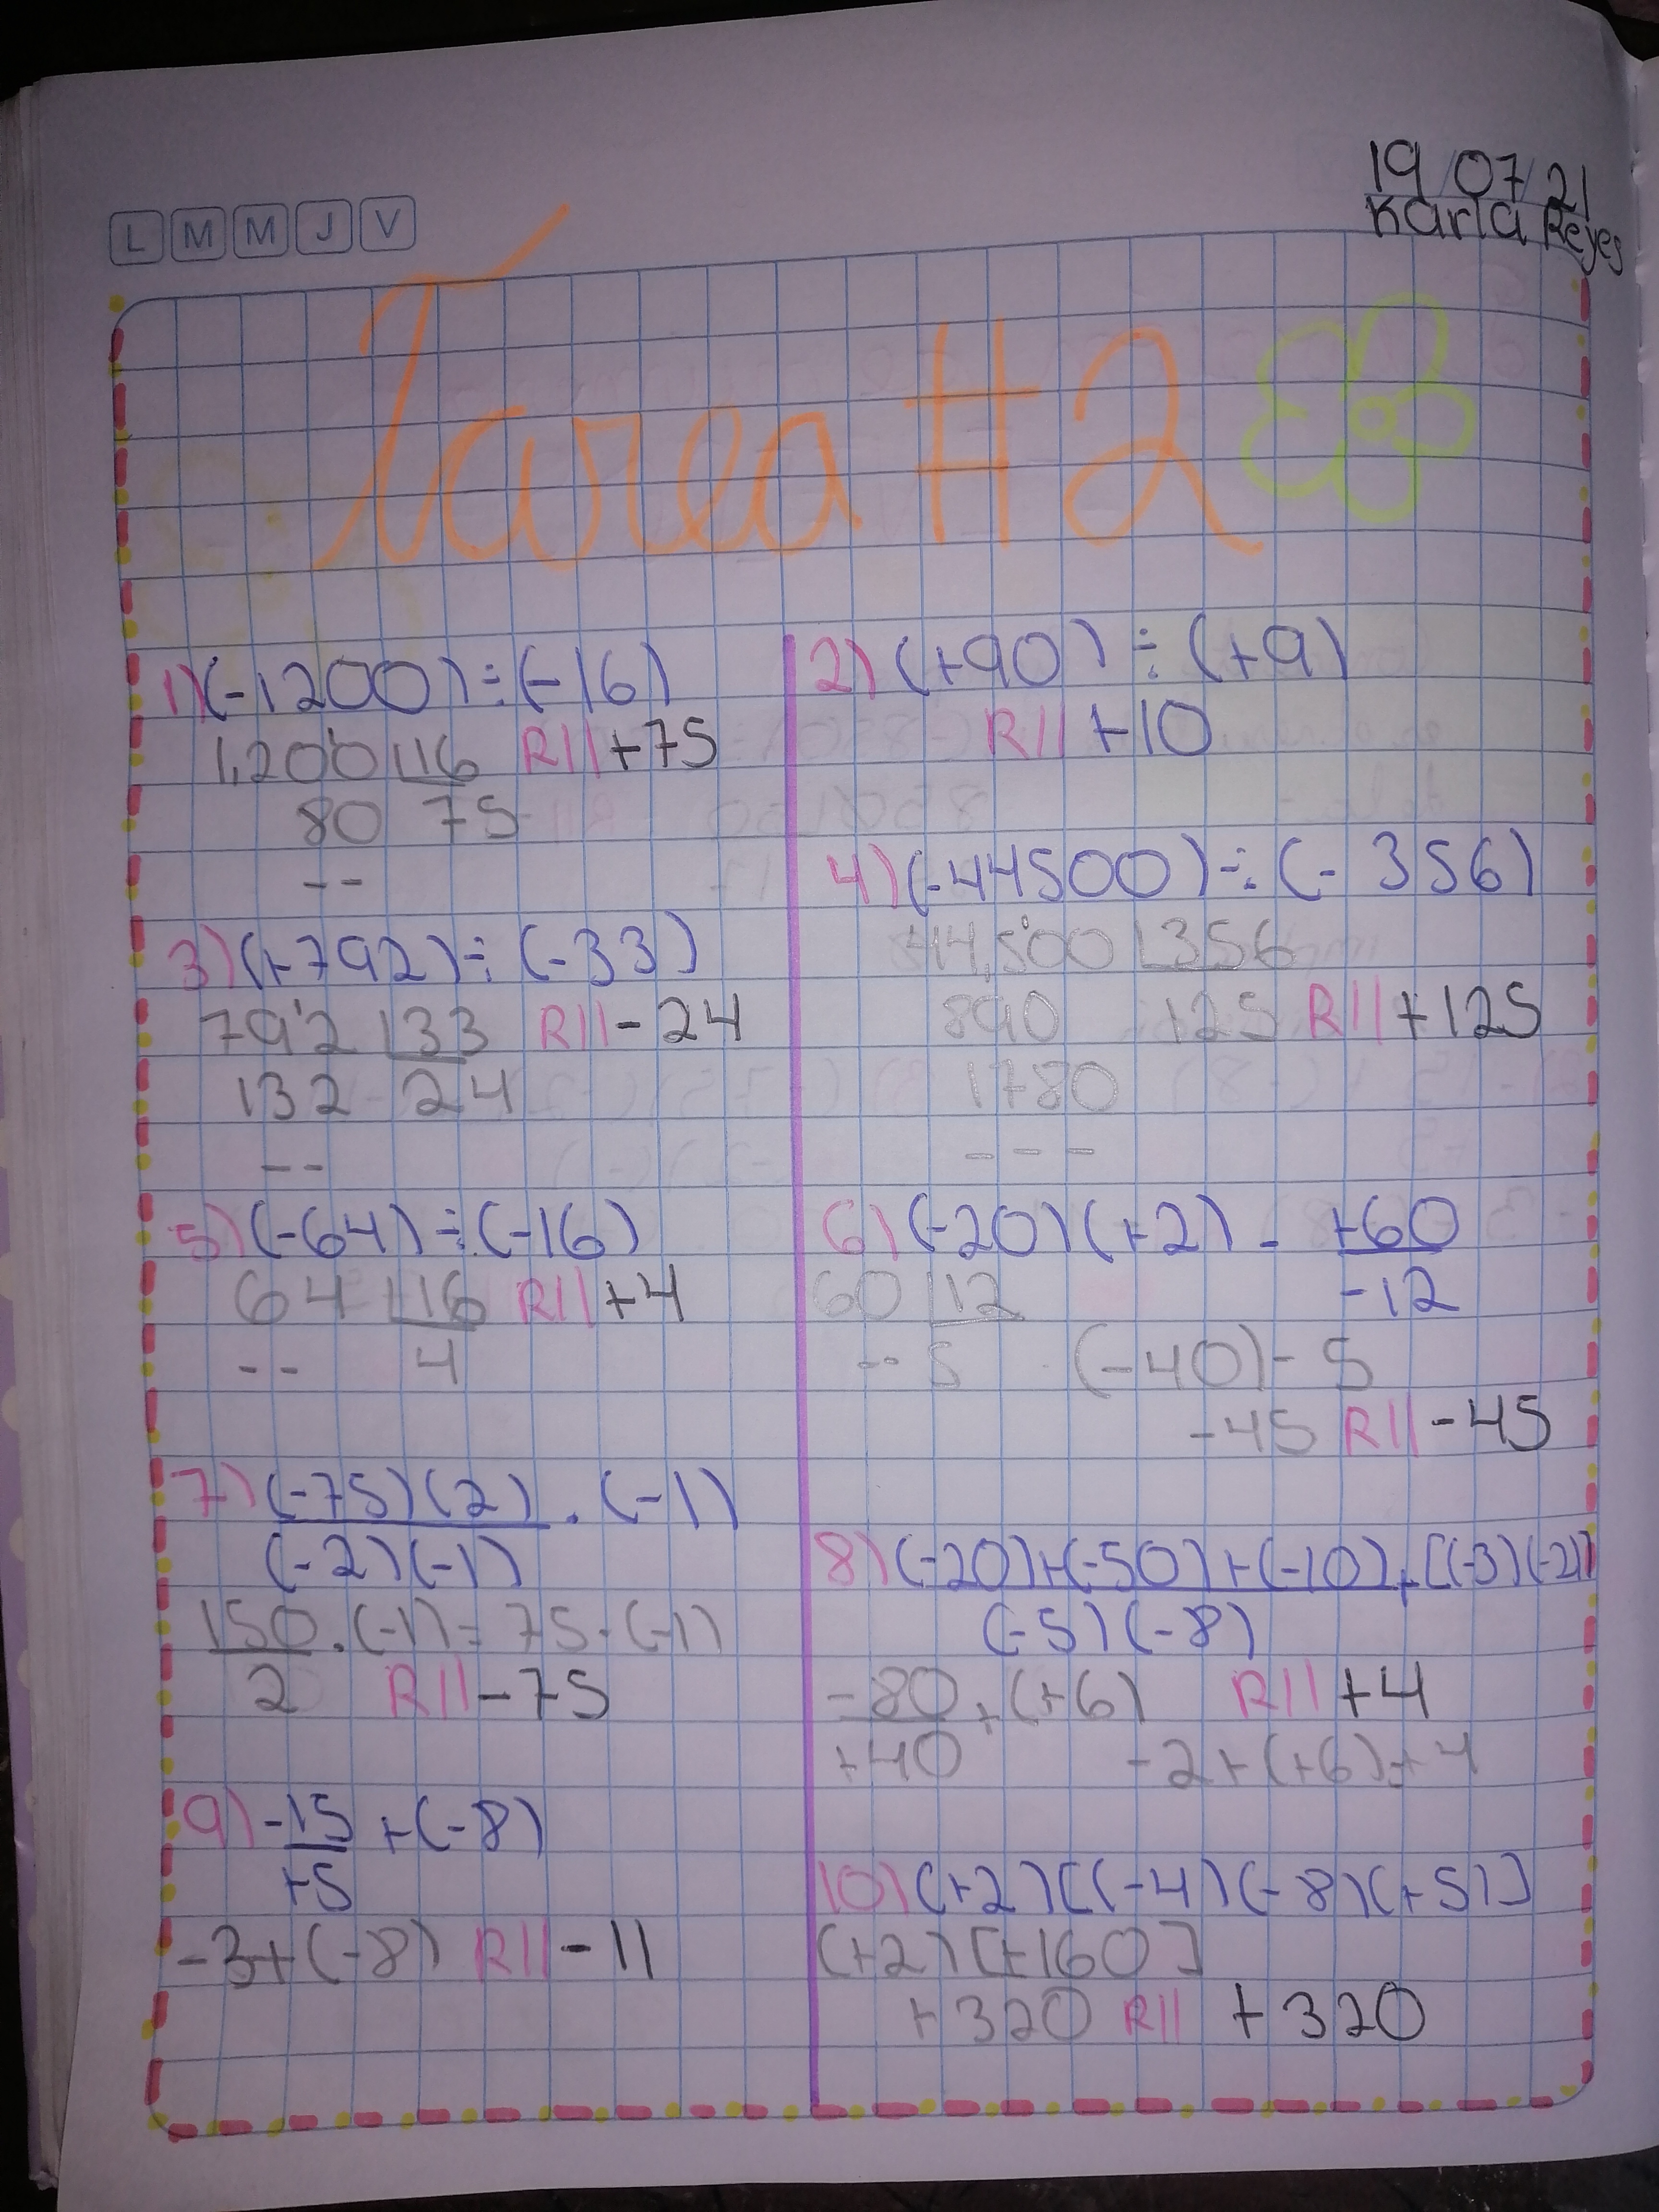 19/07/21
Karla Reyes
L M M J V
Tarea #2
1) (-1200) ÷ (-16)
1,200 16 R// +75
80 75
--
2) (+90) ÷ (+9)
R// +10
3) (+792) ÷ (-33)
792 33 R// -24
132 24
--
4) (-44500) ÷ (- 356)
44,500 356
890 125 R// +125
1780
---
5) (-64) ÷ (-16)
64 16 R// +4
-- 4
6) (-20) (+2) - +60
-12
60 12
-- 5 (-40) - 5
-45 R// -45
7) (-75) (2) . (-1)
(-2) (-1)
150 . (-1) = 75 . (-1)
2 R// -75
8) (-20) + (-50) + (-10) + [(-3) (-2)]
(-5) (-8)
-80 + (+6) R// +4
+40 -2 + (+6) = +4
9) -15 + (-8)
+5
-3 + (-8) R// -11
10) (+2) [(-4) (-8) (+5)]
(+2) [+160]
+320 R// +320